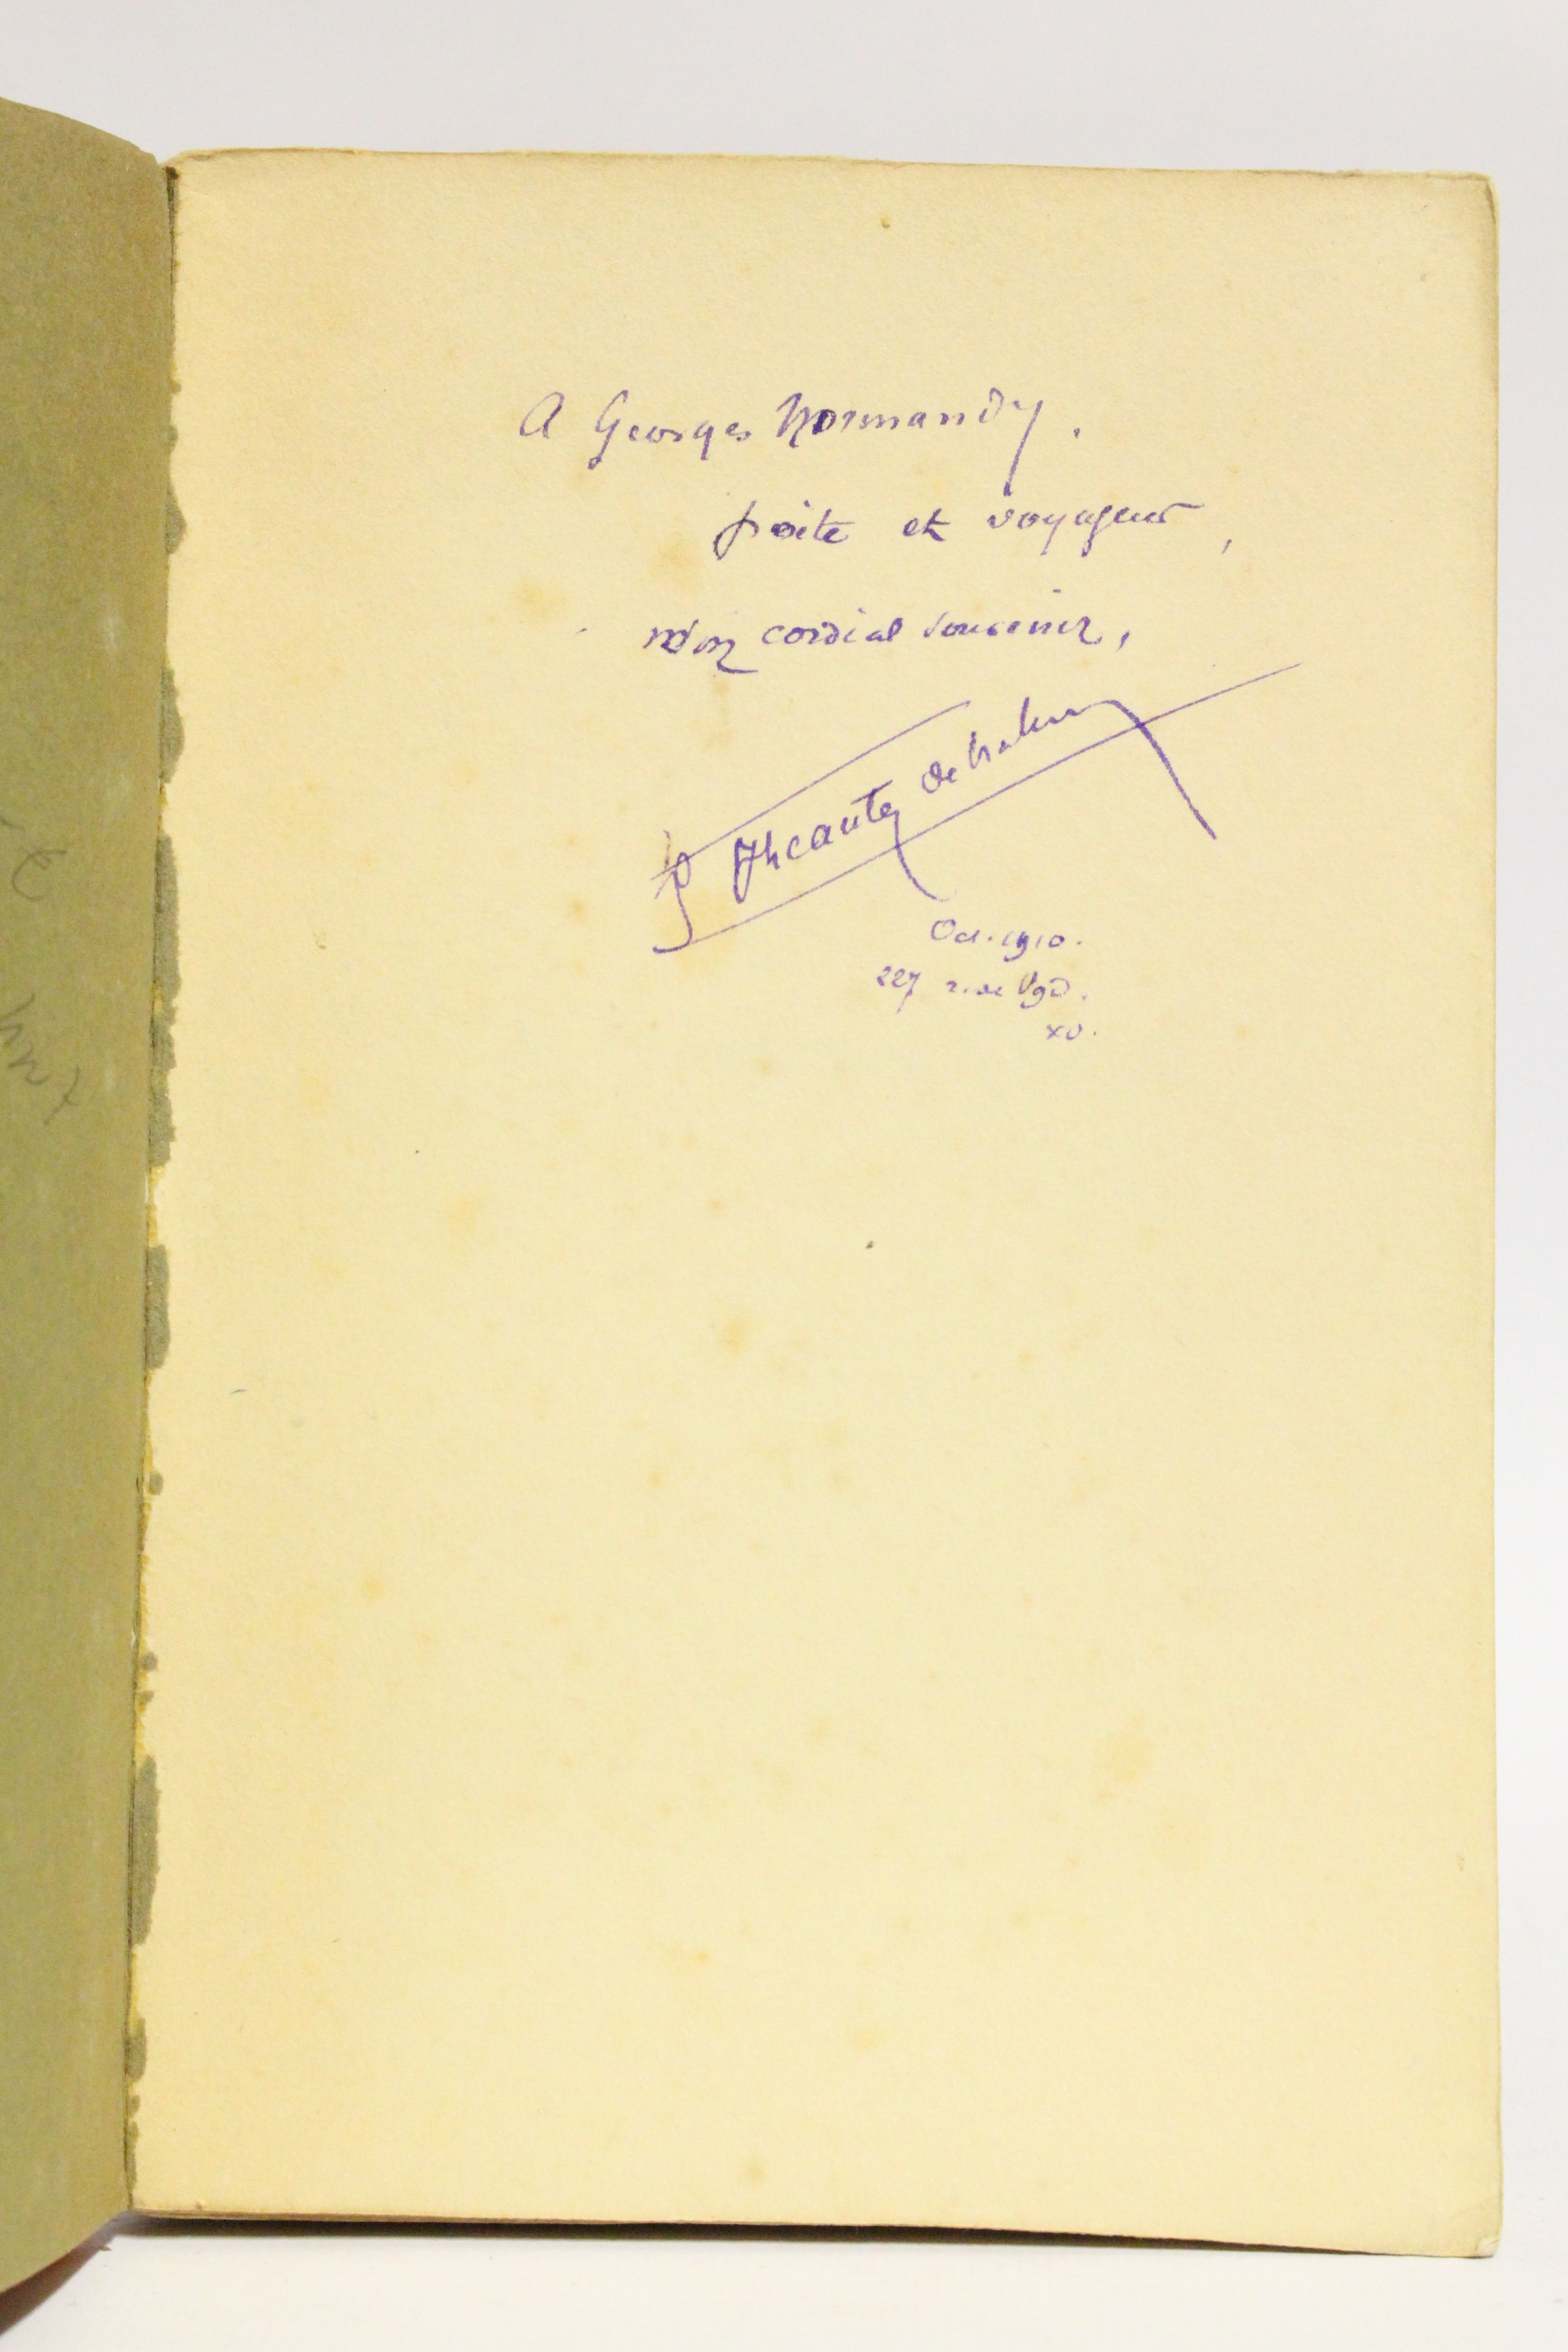 A Georges Normandy.
poète et voyageur,
Mon cordial souvenir,
Oct. 1910.
227 r. de Vgd.
XV.